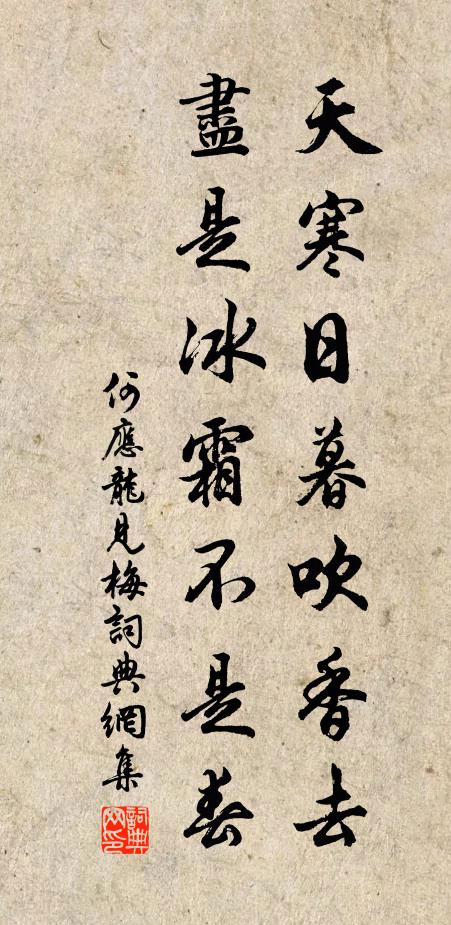 天寒日暮吹香去
盡是冰霜不是春
何應龍見梅詞典網集
詞典網印